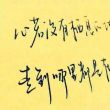 心若没有栖息的
走到哪里都是